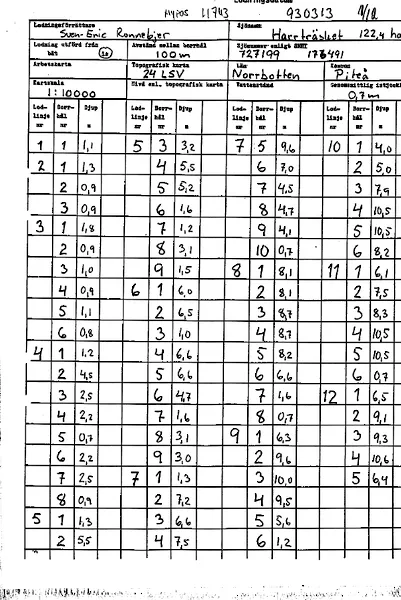 Lodningsdatum
MYPOS 11743 930313 1/12
Lodningsförrättare Sjönamn
Sven-Eric Ronnebjer Harrträsket 122,4 ha
Lodning utförd från Avstånd mellan borrhål Sjönummer enligt SMHI
båt is 100 m 727199 176491
Arbetskarta Topografisk karta Län Kommun
24 LSV Norrbotten Piteå
Kartskala Nivå enl. topografisk karta Vattenstånd Genomsnittlig istjocklek
1:10000 0,7 m
Lodlinje nr Borrhål nr Djup m Lodlinje nr Borrhål nr Djup m Lodlinje nr Borrhål nr Djup m Lodlinje nr Borrhål nr Djup m
1 1 1,1 5 3 3,2 7 5 9,6 10 1 4,0
2 1 1,3 4 5,5 6 7,0 2 5,0
2 0,9 5 5,2 7 4,5 3 7,9
3 0,9 6 1,6 8 4,7 4 10,5
3 1 1,8 7 1,2 9 4,1 5 10,5
2 0,9 8 3,1 10 0,7 6 8,2
3 1,0 9 1,5 8 1 8,1 11 1 6,1
4 0,9 6 1 6,0 2 8,1 2 7,5
5 1,1 2 6,5 3 8,7 3 8,3
6 0,8 3 1,0 4 8,7 4 10,5
4 1 1,2 4 6,6 5 8,2 5 10,5
2 4,5 5 6,6 6 6,6 6 0,7
3 2,5 6 4,7 7 1,6 12 1 6,5
4 2,2 7 1,6 8 0,7 2 9,1
5 0,7 8 3,1 9 1 6,3 3 9,3
6 2,2 9 3,0 2 9,6 4 10,6
7 2,5 7 1 1,3 3 10,0 5 6,4
8 0,9 2 7,2 4 9,5
5 1 1,3 3 6,6 5 5,6
2 5,5 4 7,5 6 1,2